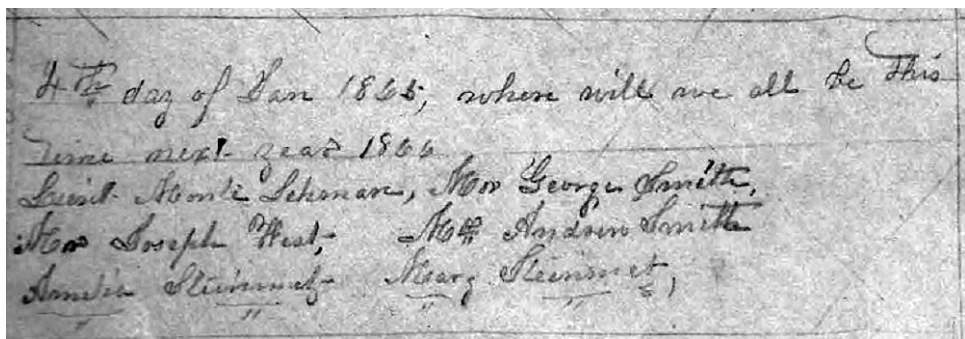 4th day of Jan 1865, where will we all be this
time next year 1866
Lieut. Monte Lehman, Mr George Smith,
Mr Joseph West, Mr Andrew Smith
Amelia Steinmetz Mary Steinmetz,